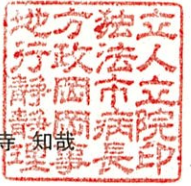 地方独立
行政法人
静岡市立
静岡病院
理事長印
寺 知哉